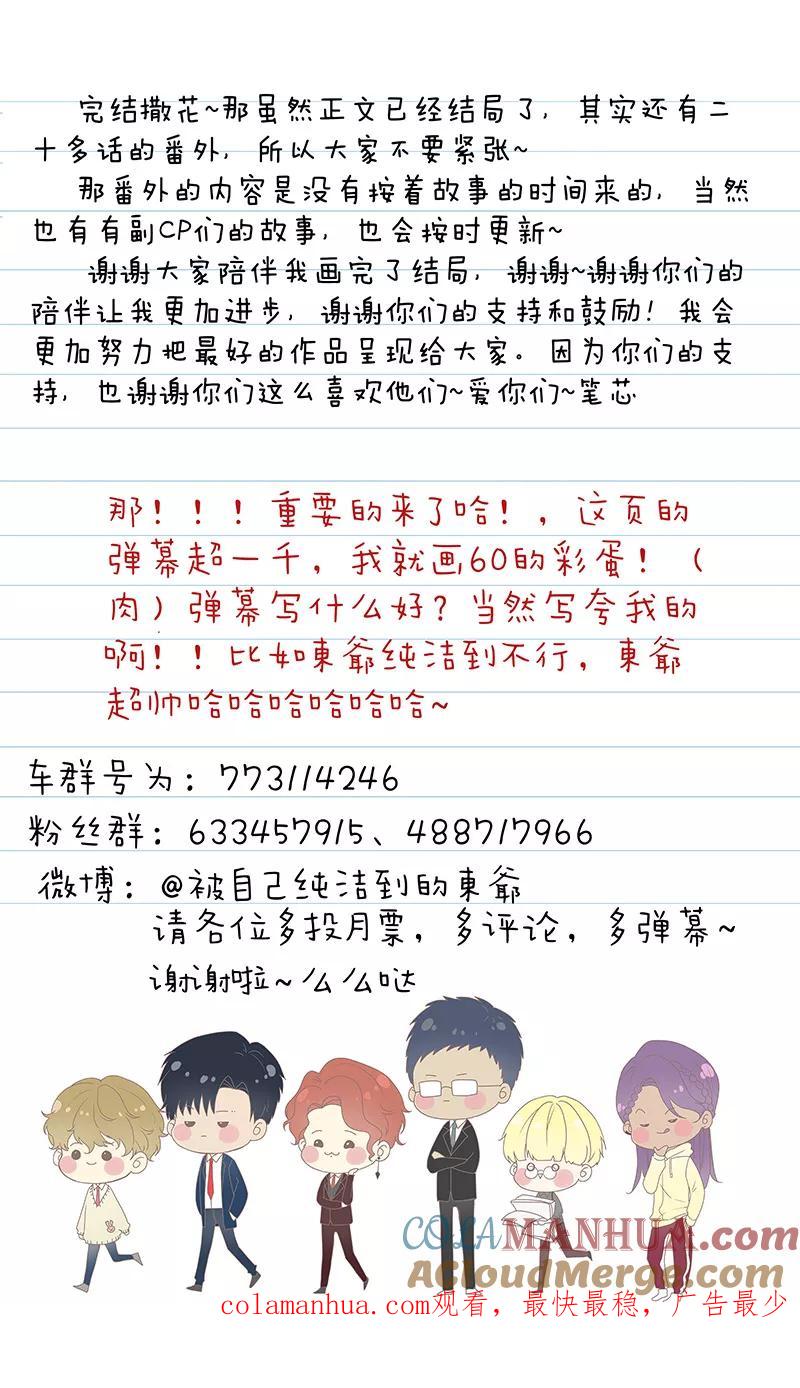 完结撒花~那虽然正文已经结局了，其实还有二
十多话的番外，所以大家不要紧张~
那番外的内容是没有按着故事的时间来的，当然
也有有副CP们的故事，也会按时更新~
谢谢大家陪伴我画完了结局，谢谢~谢谢你们的
陪伴让我更加进步，谢谢你们的支持和鼓励！我会
更加努力把最好的作品呈现给大家。因为你们的支
持，也谢谢你们这么喜欢他们~爱你们~笔芯
那！！！重要的来了哈！，这页的
弹幕超一千，我就画60的彩蛋！（
肉）弹幕写什么好？当然写夸我的
啊！！比如東爺纯洁到不行，東爺
超帅哈哈哈哈哈哈~
车群号为：773114246
粉丝群：633457915、488717966
微博：@被自己纯洁到的東爺
请各位多投月票，多评论，多弹幕~
谢谢啦~么么哒
COLAMANHUA.com
ACloudMerge.com
colamanhua.com观看，最快最稳，广告最少